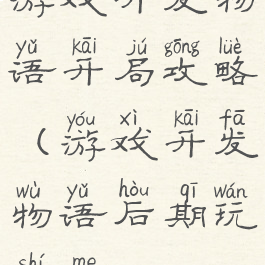 游戏开发物
yǔ kāi jú gōng lüè
语开局攻略
yóu xì kāi fā
（游戏开发
wù yǔ hòu qī wán
物语后期玩
shí me